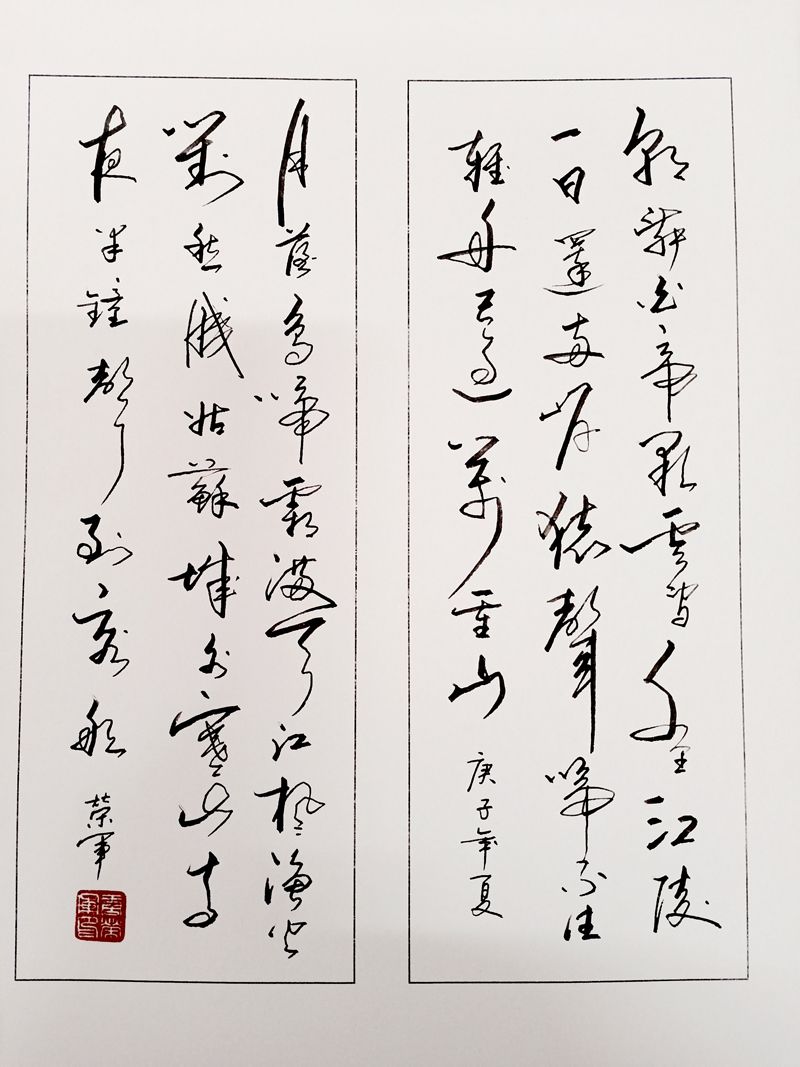 朝辭白帝彩雲間千里江陵
一日還兩岸猿聲啼不住
輕舟已過萬重山 庚子年夏
月落烏啼霜滿天江楓漁火
對愁眠姑蘇城外寒山寺
夜半鐘聲到客船 榮軍